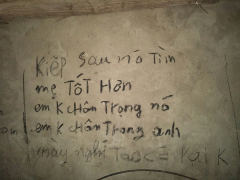 Kiếp sau nó Tìm
mẹ TốT Hơn
em K chân Trọng nó
em K chân Trọng anh
nghĩ